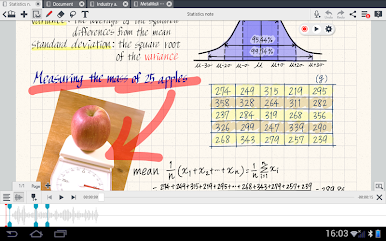 Statistics n.
Document
Industry a.
MetaMoJi
Statistics note
variance: The average of the squared
differences from the mean
standard deviation: the square root
of the variance
95.44%
99.74%
Measuring the mass of 25 apples
(g)
274 249 315 219 295
358 328 264 311 282
237 284 319 268 356
326 299 247 339 290
268 343 279 257 239
mean 1/n (x₁+x₂+…+xₙ)=1/n Σxᵢ
1/1 Page
00:00:00
16:03